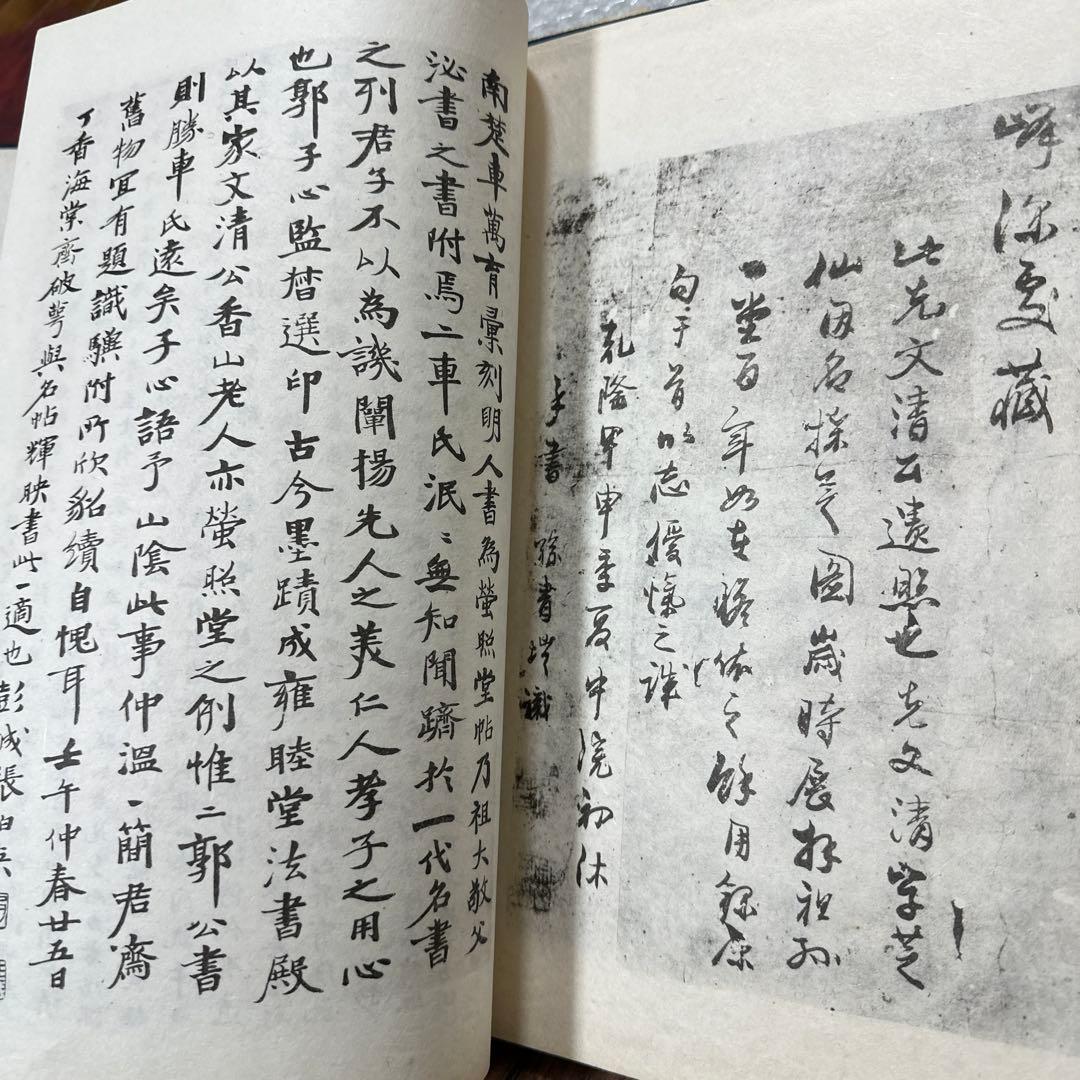 峰深更藏
此先文清公遺照也先文清學芝
仙因名採芝圖歲時展拜祖孫
一堂百年如在瞻依之餘用錄原
句于首以志優愾之誠
乾隆甲申季夏中浣初休
孫書識
南楚車萬育彙刻明人書為螢照堂帖乃祖大敬父
泌書之書附焉二車氏泯〻無知聞躋於一代名書
之列君子不以為譏闡揚先人之美仁人孝子之用心
也郭子心監暦選印古今墨蹟成雍睦堂法書殿
以其家文清公香山老人亦螢照堂之例惟二郭公書
則勝車氏遠矣子心語予山陰此事仲溫〻簡君齋
舊物宜有題識驥附所欣貂續自愧耳壬午仲春廿五日
丁香海棠齋破萼與名帖輝映書此一適也彭城張伯英